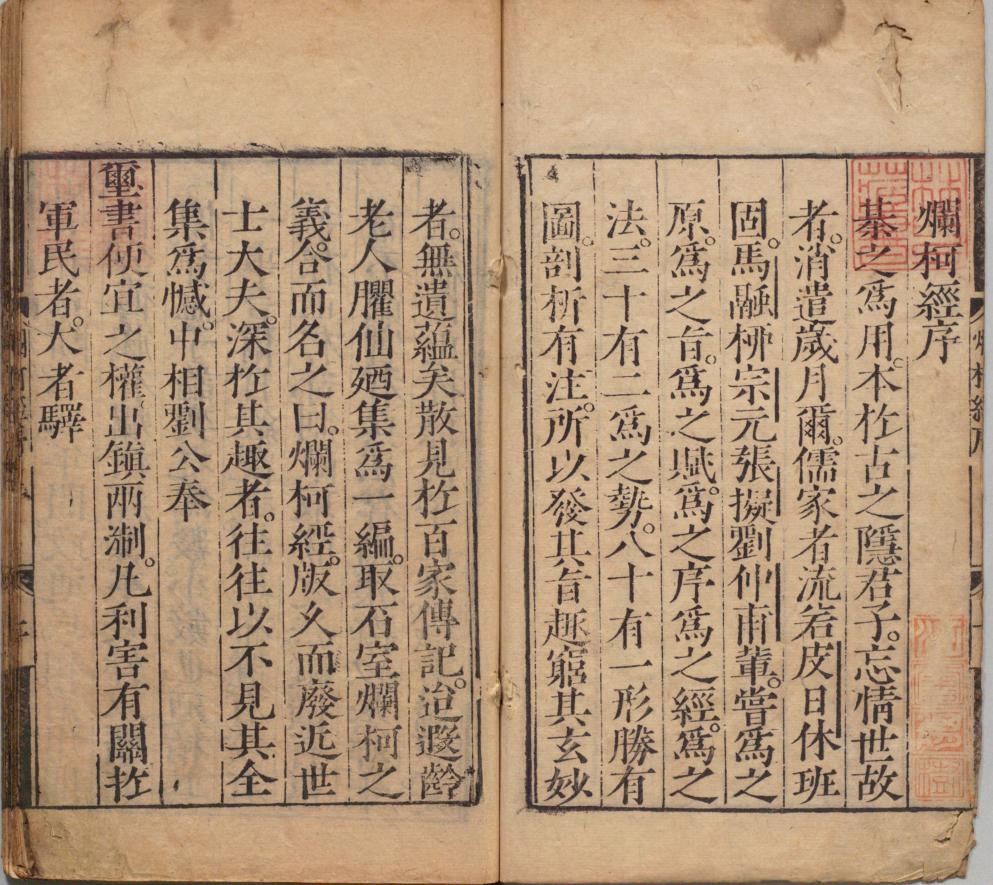 爛柯經序
棊之爲用。本於古之隱君子。忘情世故
者。消遣歲月爾。儒家者流若皮日休班
固。馬融栁宗元張擬劉仲甫輩。嘗爲之
原。爲之旨。爲之賦。爲之序爲之經。爲之
法。三十有二爲之勢。八十有一形勝有
圖。剖析有注。所以發其旨趣窮其玄妙
者。無遺蘊矣散見於百家傳記。迨遐齡
老人臞仙廼集爲一編。取石室爛柯之
義。合而名之曰。爛柯經。版久而廢近世
士大夫。深於其趣者。往往以不見其全
集爲憾。中相劉公奉
璽書便宜之權出鎮兩淛。凡利害有關於
軍民者。大者驛